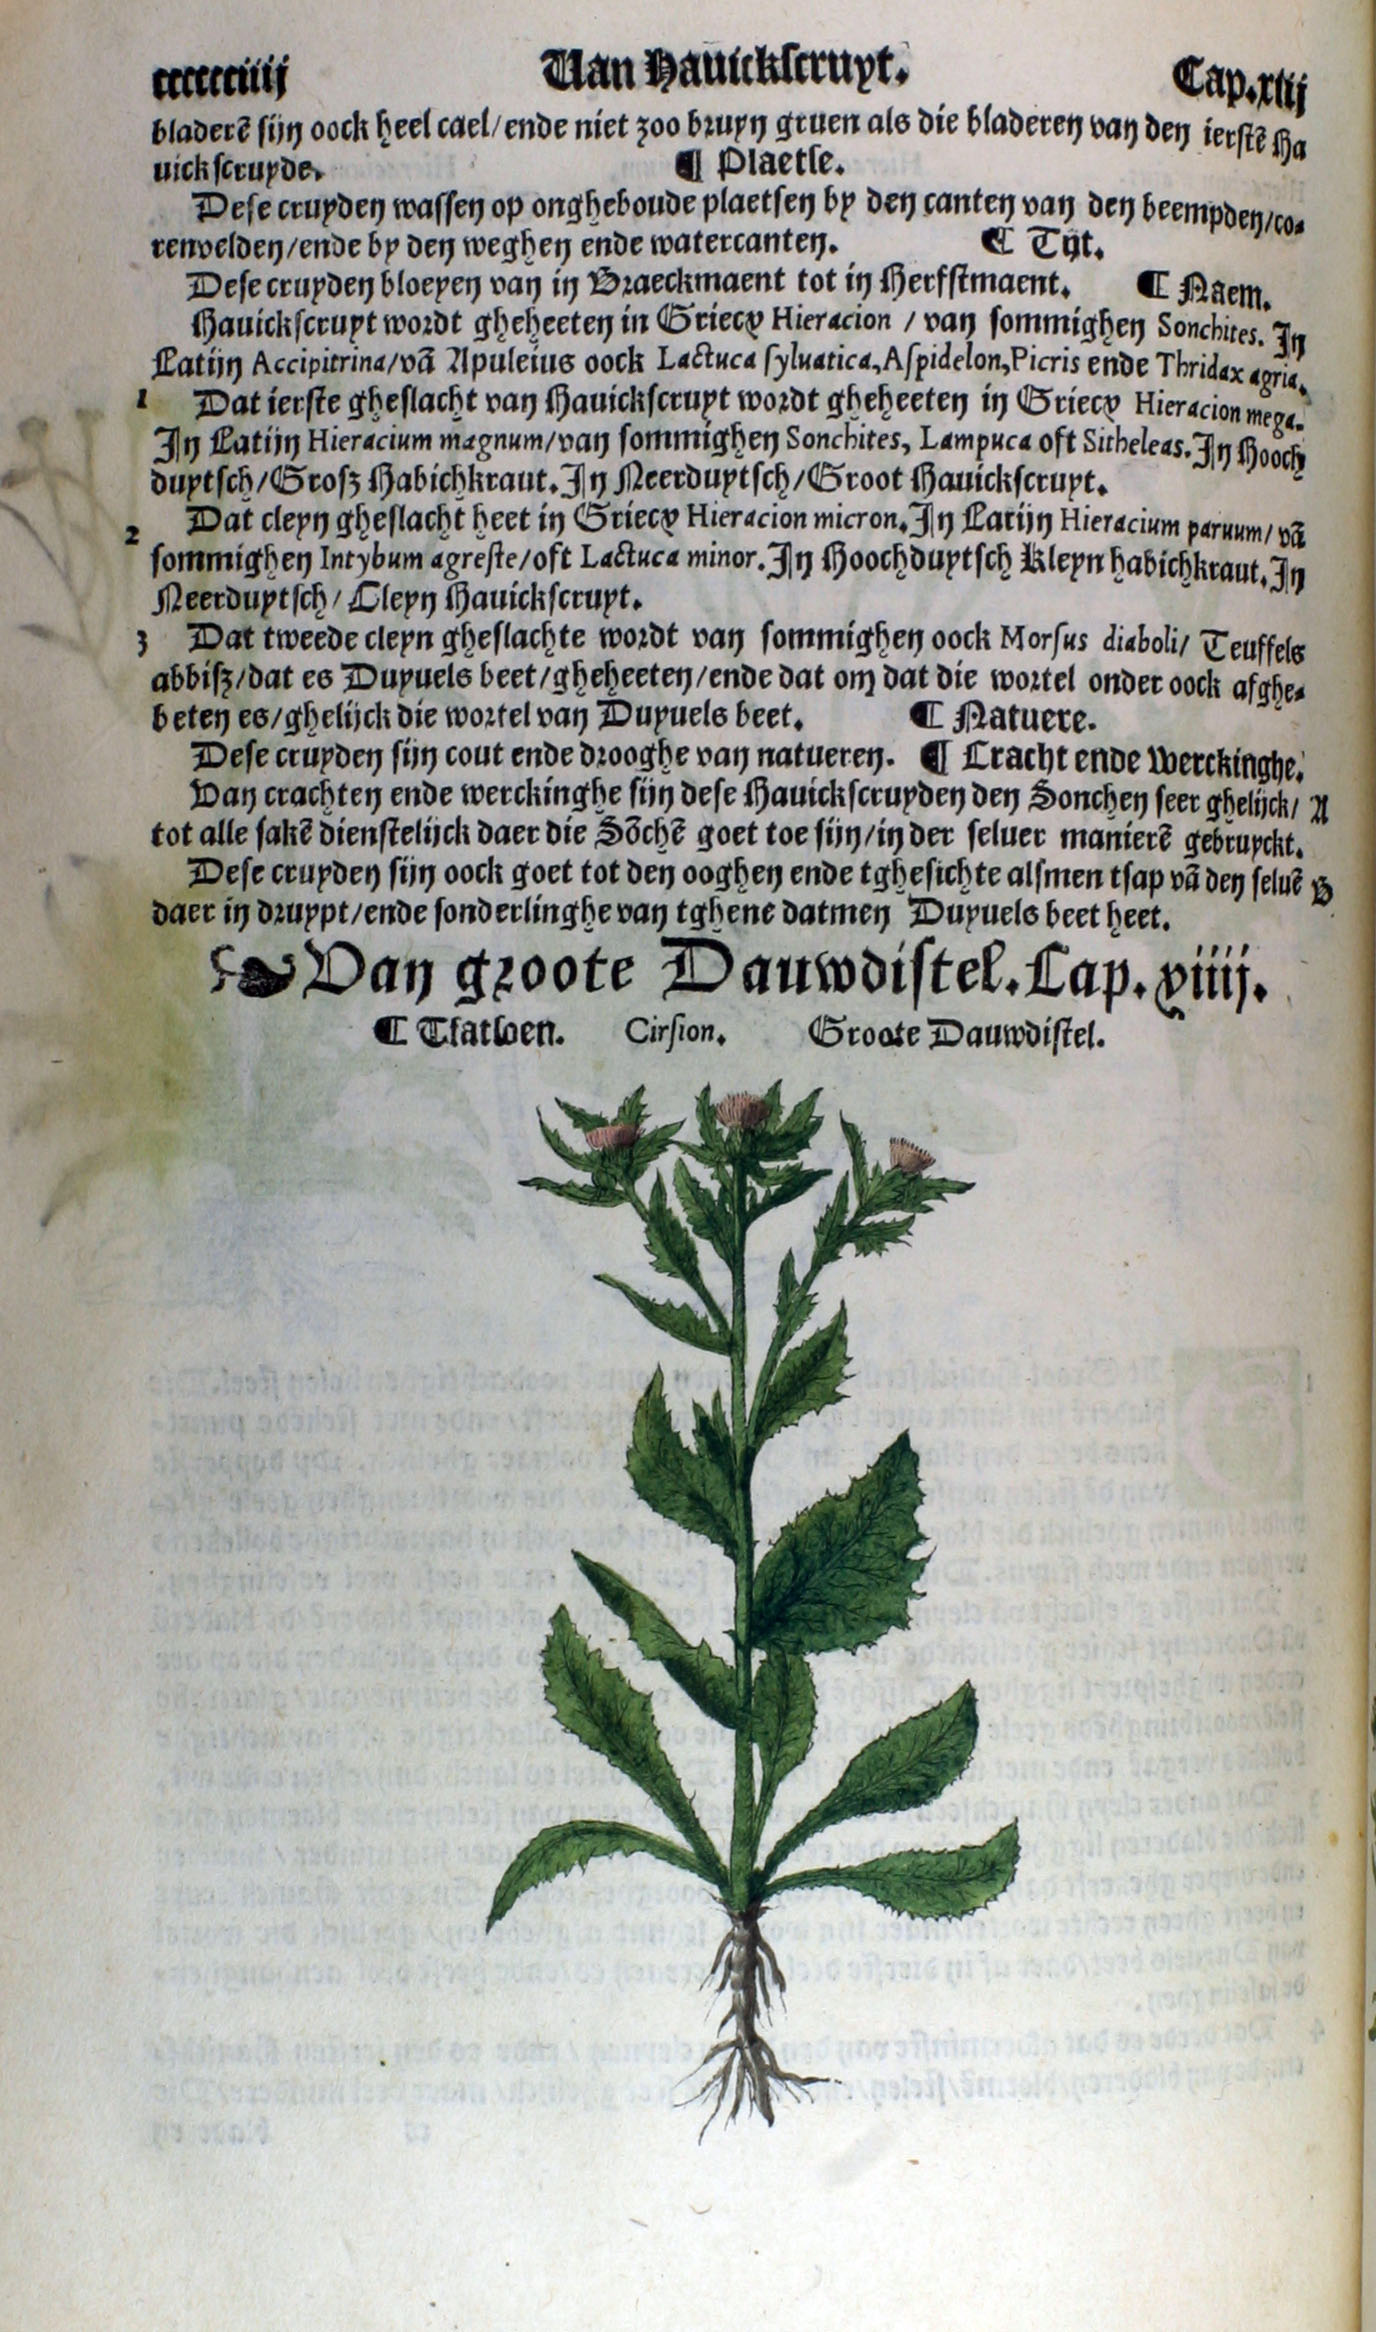 cccccciiij Uan Hauickscruyt. Cap.xlij
bladerē sijn oock heel cael/ende niet zoo bruyn gruen als die bladeren van den ierstē Ha
uickscruyde. ¶ Plaetse.
Dese cruyden wassen op ongheboude plaetsen by den canten van den beempden/co-
renvelden/ende by den weghen ende watercanten. ¶ Tijt.
Dese cruyden bloeyen van in Braeckmaent tot in Herfstmaent. ¶ Naem.
Hauickscruyt wordt gheheeten in Griecx Hieracion / van sommighen Sonchites. In
Latijn Accipitrina/vā Apuleius oock Lactuca syluatica, Aspidelon, Picris ende Thridax agria.
1 Dat ierste gheslacht van Hauickscruyt wordt gheheeten in Griecx Hieracion mega.
In Latijn Hieracium magnum/van sommighen Sonchites, Lampuca oft Sitheleas. In Hooch
duytsch/Grosz Habichkraut. In Neerduytsch/Groot Hauickscruyt.
2 Dat cleyn gheslacht heet in Griecx Hieracion micron. In Latijn Hieracium paruum/vā
sommighen Intybum agreste/oft Lactuca minor. In Hoochduytsch Kleyn habichkraut. In
Neerduytsch/ Cleyn Hauickscruyt.
3 Dat tweede cleyn gheslachte wordt van sommighen oock Morsus diaboli/ Teuffels
abbisz/dat es Duyuels beet/gheheeten/ende dat om dat die wortel onder oock afghe-
beten es/ghelijck die wortel van Duyuels beet. ¶ Natuere.
Dese cruyden sijn cout ende drooghe van natueren. ¶ Cracht ende Werckinghe.
Van crachten ende werckinghe sijn dese Hauickscruyden den Sonchen seer ghelijck/ A
tot alle sakē dienstelijck daer die Sōchē goet toe sijn/in der seluer manierē gebruyckt.
Dese cruyden sijn oock goet tot den ooghen ende tghesichte alsmen tsap vā den seluē B
daer in druypt/ende sonderlinghe van tghene datmen Duyuels beet heet.
Van groote Dauwdistel. Cap. xiiij.
¶ Tfatsoen. Cirsion. Groote Dauwdistel.